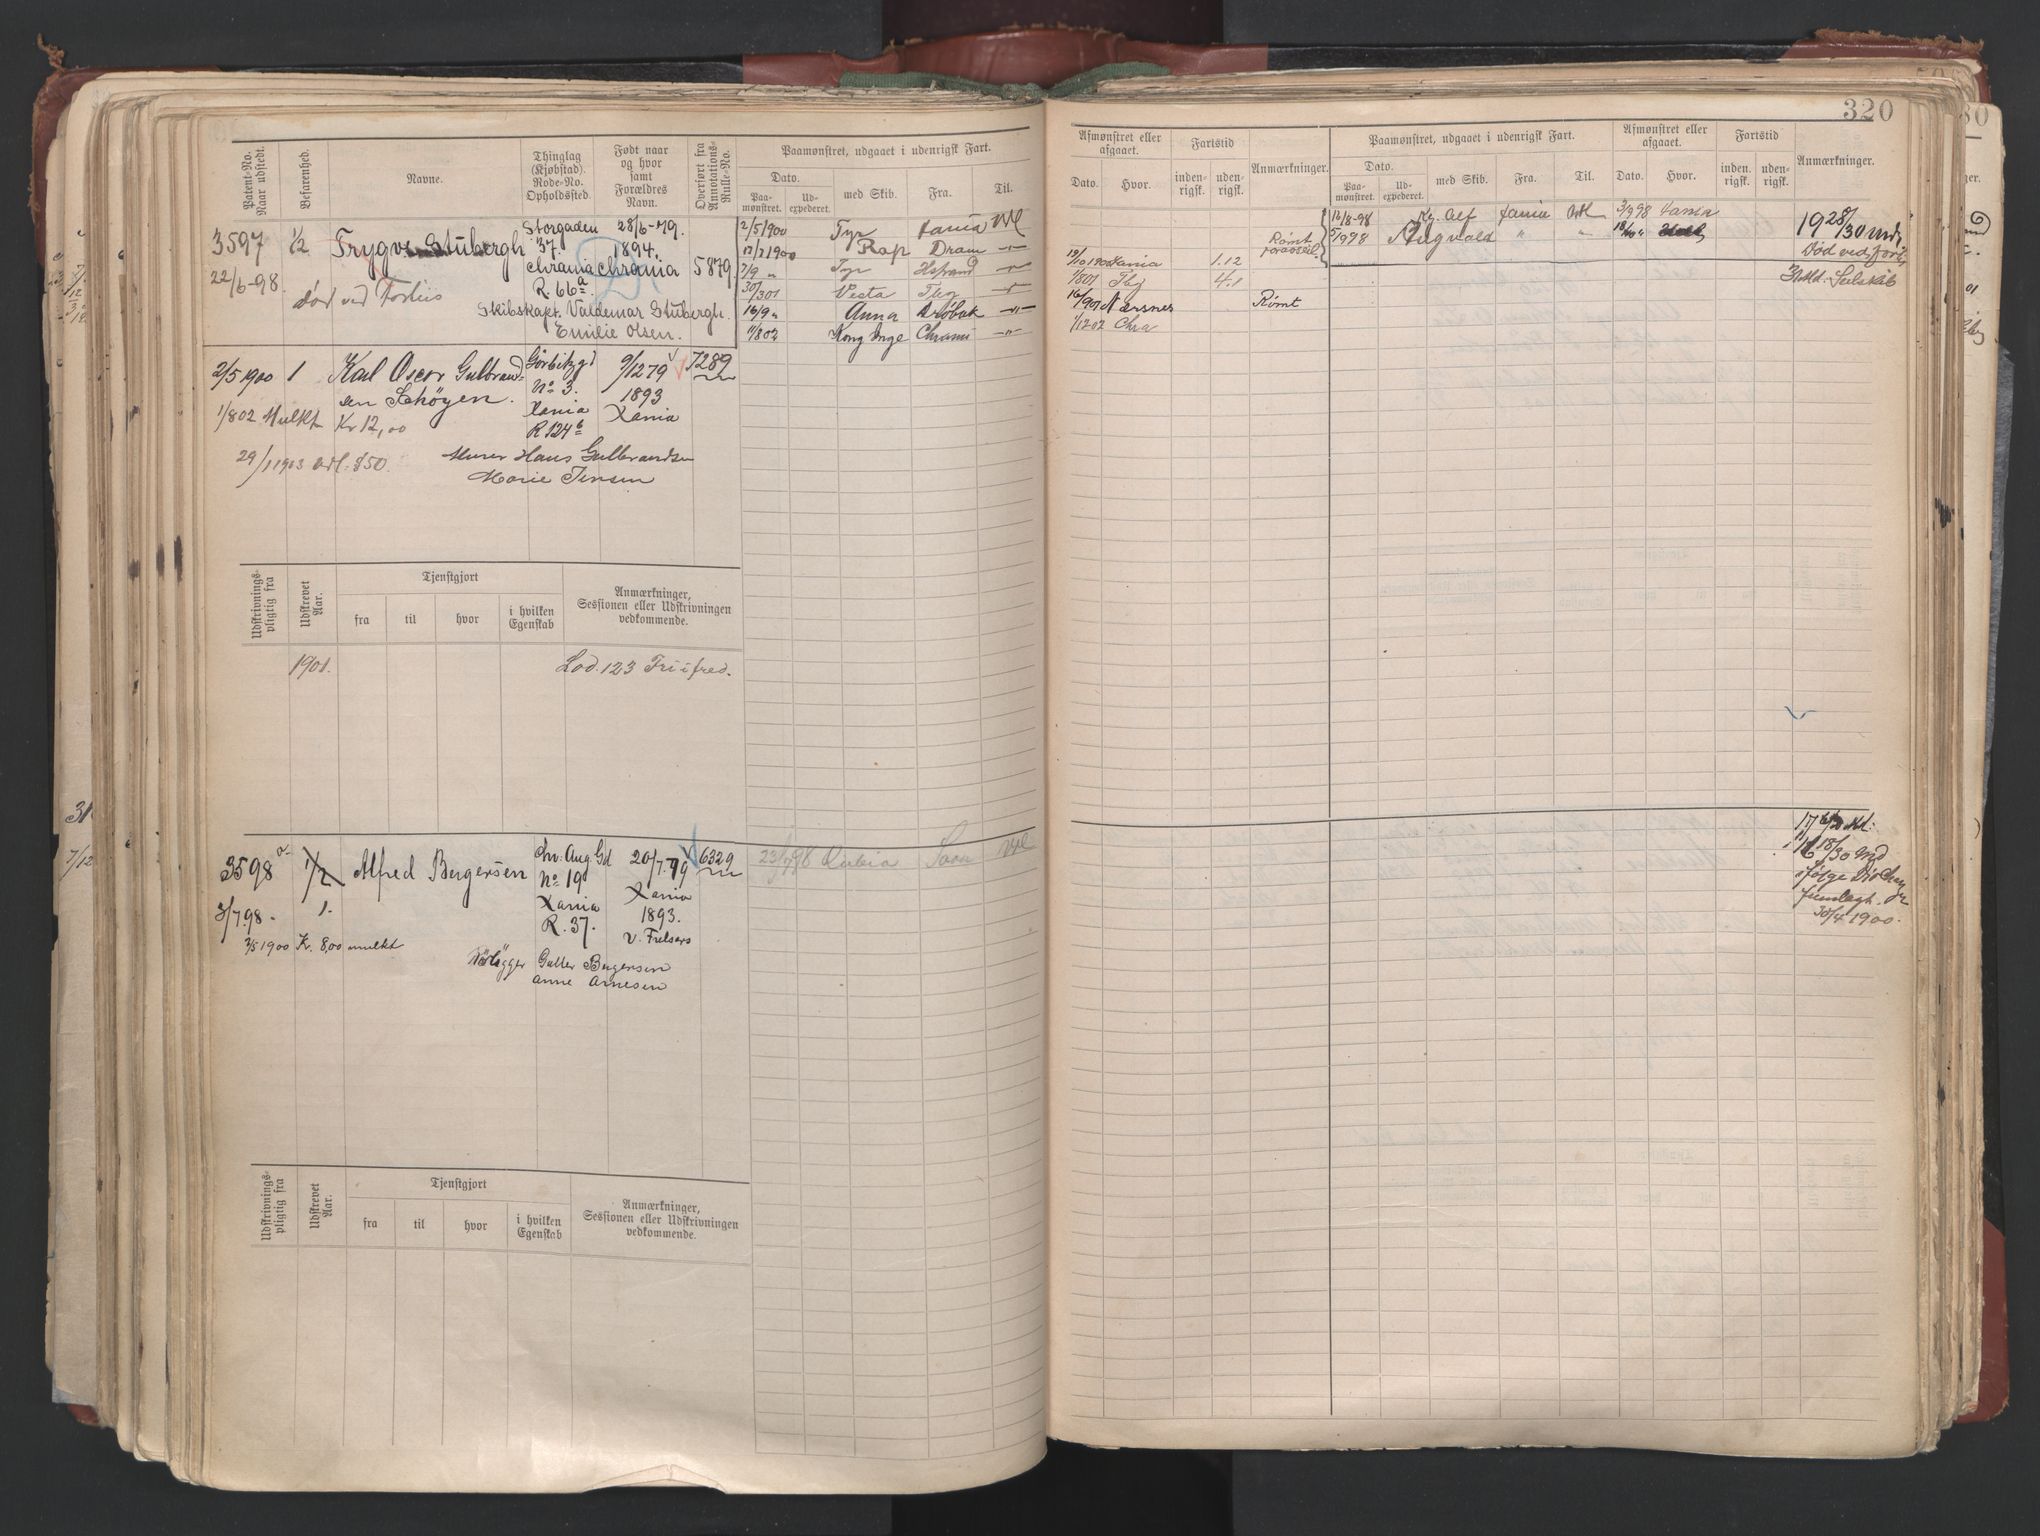 320
Patent-No. Naar udstedt.
Befarenhed.
Navne.
Thinglag (Kjøbstad). Rode-No. Opholdssted.
Født naar og hvor samt Forældres Navn.
Overført fra Annotations-Rulle-No.
Paamønstret, udgaaet i udenrigsk Fart.
Dato.
Paamønstret.
Udexpederet.
med Skib.
Fra.
Til.
3597 1/2 Trygve Stubergh Storgaden 28/6-79.
37. 1894.
22/6-98. Chrania Chrania 5879
død ved Forliis R. 66a
Skibskapt. Valdemar Stubergh.
Emilie Olsen.
2/5 1900 Tyr Xania Vtl
12/2 1900 Rap Dram -"-
7/9 " Tyr
30/3 01 Vesta Tbg
16/9 " Anna Drøbak -"-
11/8 02 Kong Inge Chrania -"-
2/5 1900 1 Karl Oscar Gulbrand- 9/12 79 7289
sen Schøyen. No 3. 1893
1/8 02 Mulkt Kr 12,00 Xania Xania
R 124b
29/1 1903 Murer Hans Gulbrandsen
Marie Jensen
Udskrivningspligtig fra
Udskrevet Aar.
Tjenstgjort
fra
til
hvor
i hvilken Egenskab
Anmærkninger, Sessionen eller Udskrivningen vedkommende.
1901. Lod. 123 Fri i fred.
3598 1/2 Alfred Bergersen Chr. Aug. Gd 20/7.79 6329
No 19 Xania
8/7.98. 1. Xania 1893.
R. 37. v. Frelsers
2/5 1900 Kr. 8,00 mulkt
Bergersen
Anne Arnesen
23/7 98
Udskrivningspligtig fra
Udskrevet Aar.
Tjenstgjort
fra
til
hvor
i hvilken Egenskab
Anmærkninger, Sessionen eller Udskrivningen vedkommende.
Afmønstret eller afgaaet.
Fartstid
Anmærkninger.
Paamønstret, udgaaet i udenrigsk Fart.
Afmønstret eller afgaaet.
Fartstid
Anmærkninger.
Dato.
Hvor.
indenrigsk.
udenrigsk.
Dato.
Paamønstret.
Udexpederet.
med Skib.
Fra.
Til.
Dato.
Hvor.
indenrigsk.
udenrigsk.
12/8-98 Kg. Alf Xania Vtl 3/9 98 Xania 19 28/30 mdr
Rømt 5/9 98 Augvald " "
19/10 1900 Xania 1.12 Død ved Forlis
1/8 01 Tbg 4.1
16/9 01 Nærsnes Rømt
1/12 02 Chra
18/30 Md
30/4 1900.